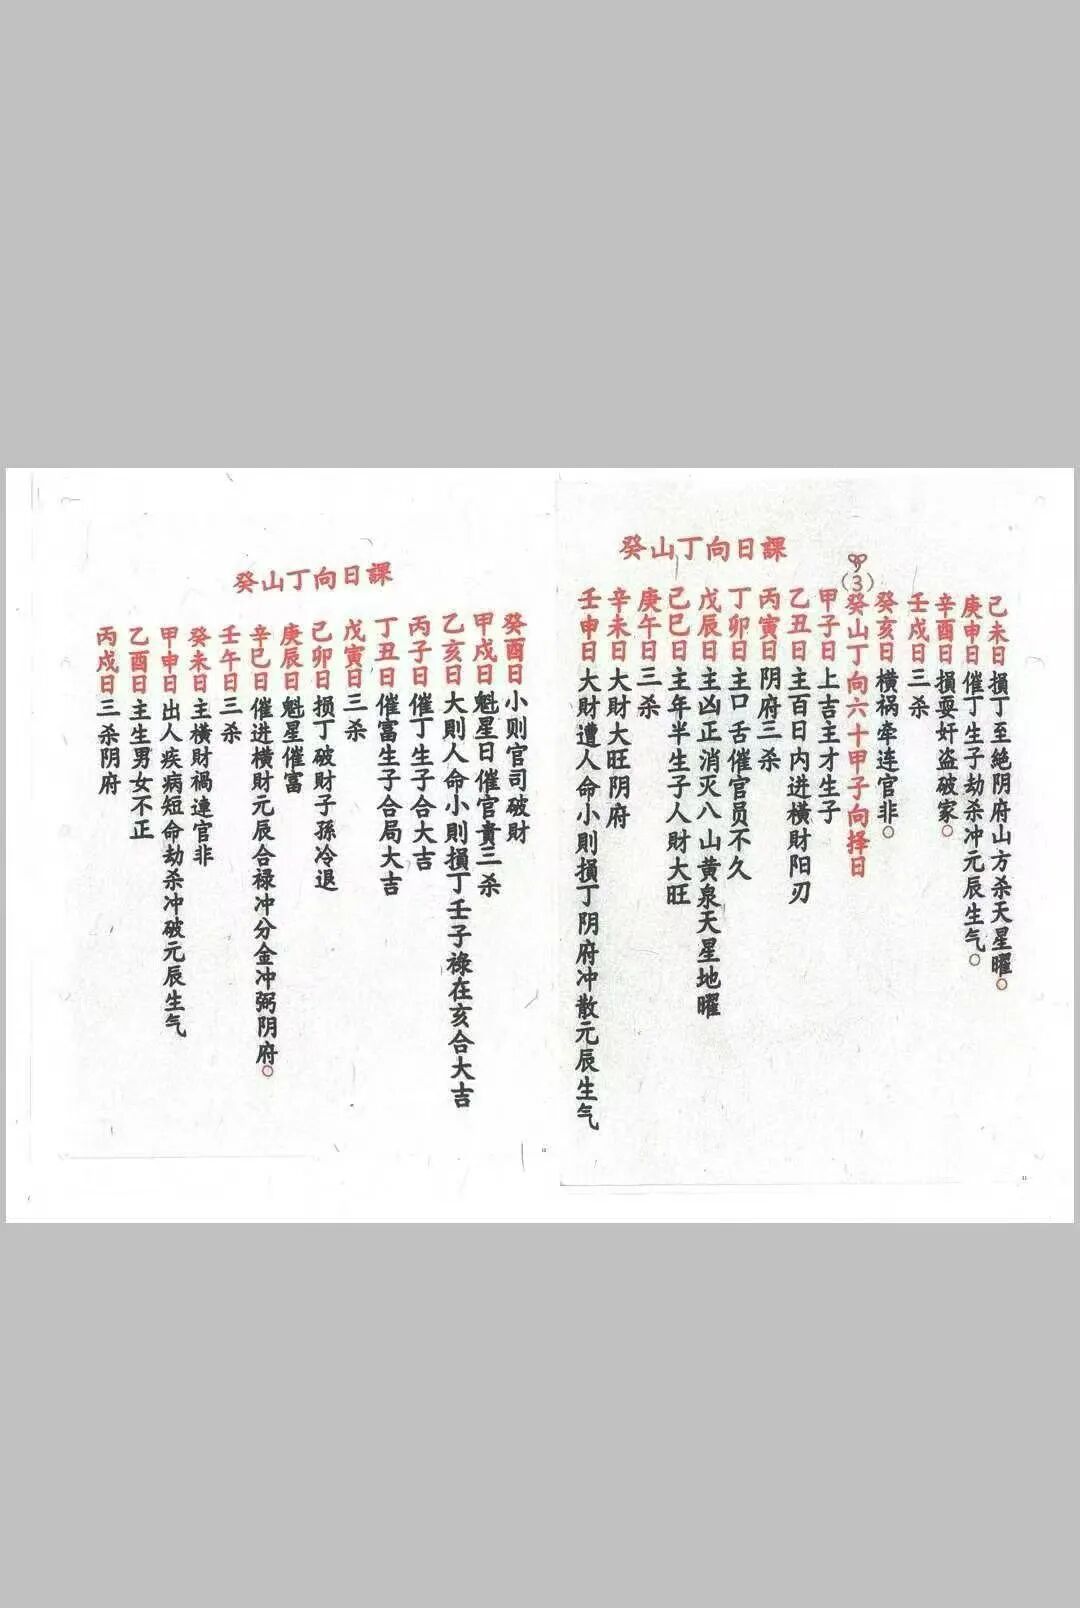 癸山丁向日課
己未日損丁至絶阴府山方杀天星曜。
庚申日催丁生子劫杀冲元辰生气。
辛酉日損耍奸盗破家。
壬戌日三杀
癸亥日横祸牵连官非。
(3)癸山丁向六十甲子向择日
甲子日上吉主才生子
乙丑日主百日内进横財阳刃
丙寅日阴府三杀
丁卯日主口舌催官员不久
戊辰日主凶正消灭八山黄泉天星地曜
己巳日主年半生子人財大旺
庚午日三杀
辛未日大財大旺阴府
壬申日大財遭人命小則損丁阴府冲散元辰生气
癸山丁向日課
癸酉日小则官司破財
甲戍日魁星日催官貴三杀
乙亥日大則人命小則損丁壬子祿在亥合大吉
丙子日催丁生子合大吉
丁丑日催富生子合局大吉
戊寅日三杀
己卯日损丁破財子孫冷退
庚辰日魁星催富
辛巳日催进横財元辰合禄冲分金冲弼阴府。
壬午日三杀
癸未日主橫財禍連官非
甲申日出人疾病短命劫杀冲破元辰生气
乙酉日主生男女不正
丙戍日三杀阴府
11
11